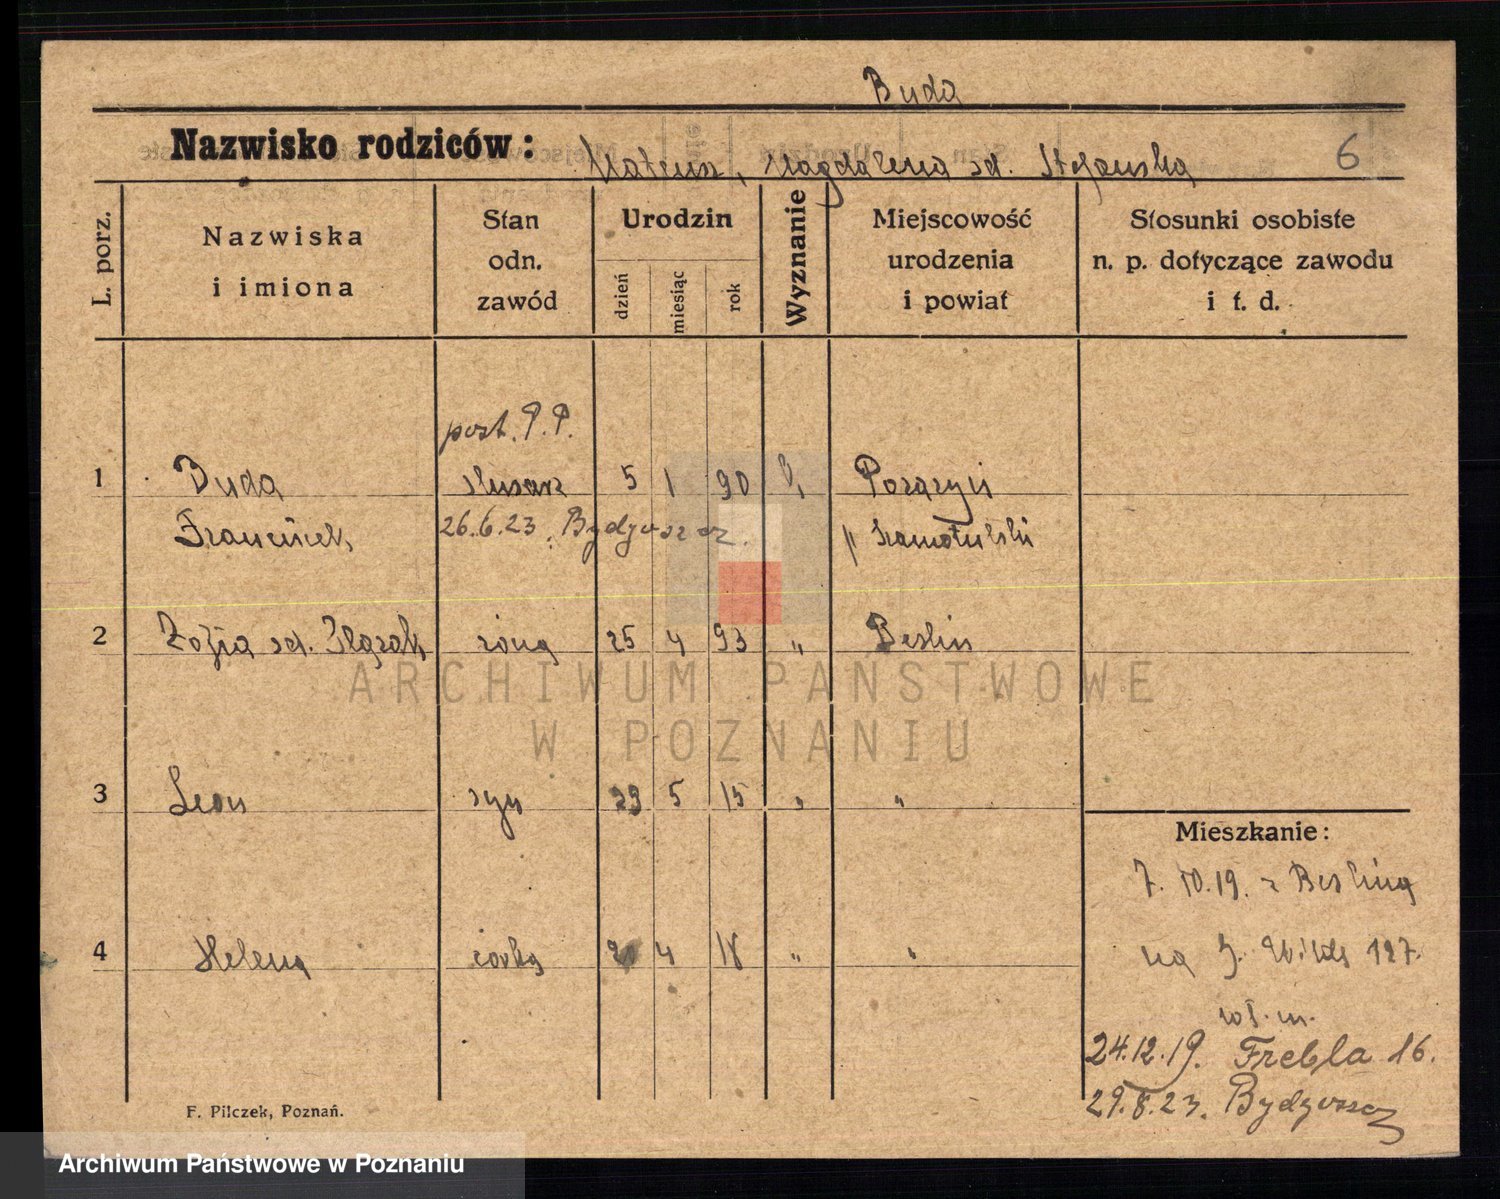 Buda
Nazwisko rodziców: Mateusz, Magdalena zd. Stefańska 6
L. porz.
Nazwiska
i imiona
Stan
odn.
zawód
Urodzin
dzień
miesiąc
rok
Wyznanie
Miejscowość
urodzenia
i powiat
Stosunki osobiste
n. p. dotyczące zawodu
i t. d.
post. P.P.
1 Buda ślusarz 5 1 90
Franciszek 26.6.23. Bydgoszcz. " Szamotulski
2 Zofia zd. żona 25 4 93 " Berlin
ARCHIWUM PAŃSTWOWE
W POZNANIU
3 Leon syn 29 5 15 " "
Mieszkanie:
7.10.19. z Berlina
4 Helena córka 2 4 18 " "
na G. Wilda 127.
24.12.19. Frebla 16.
29.8.23. Bydgoszcz
F. Pilczek, Poznań.
Archiwum Państwowe w Poznaniu